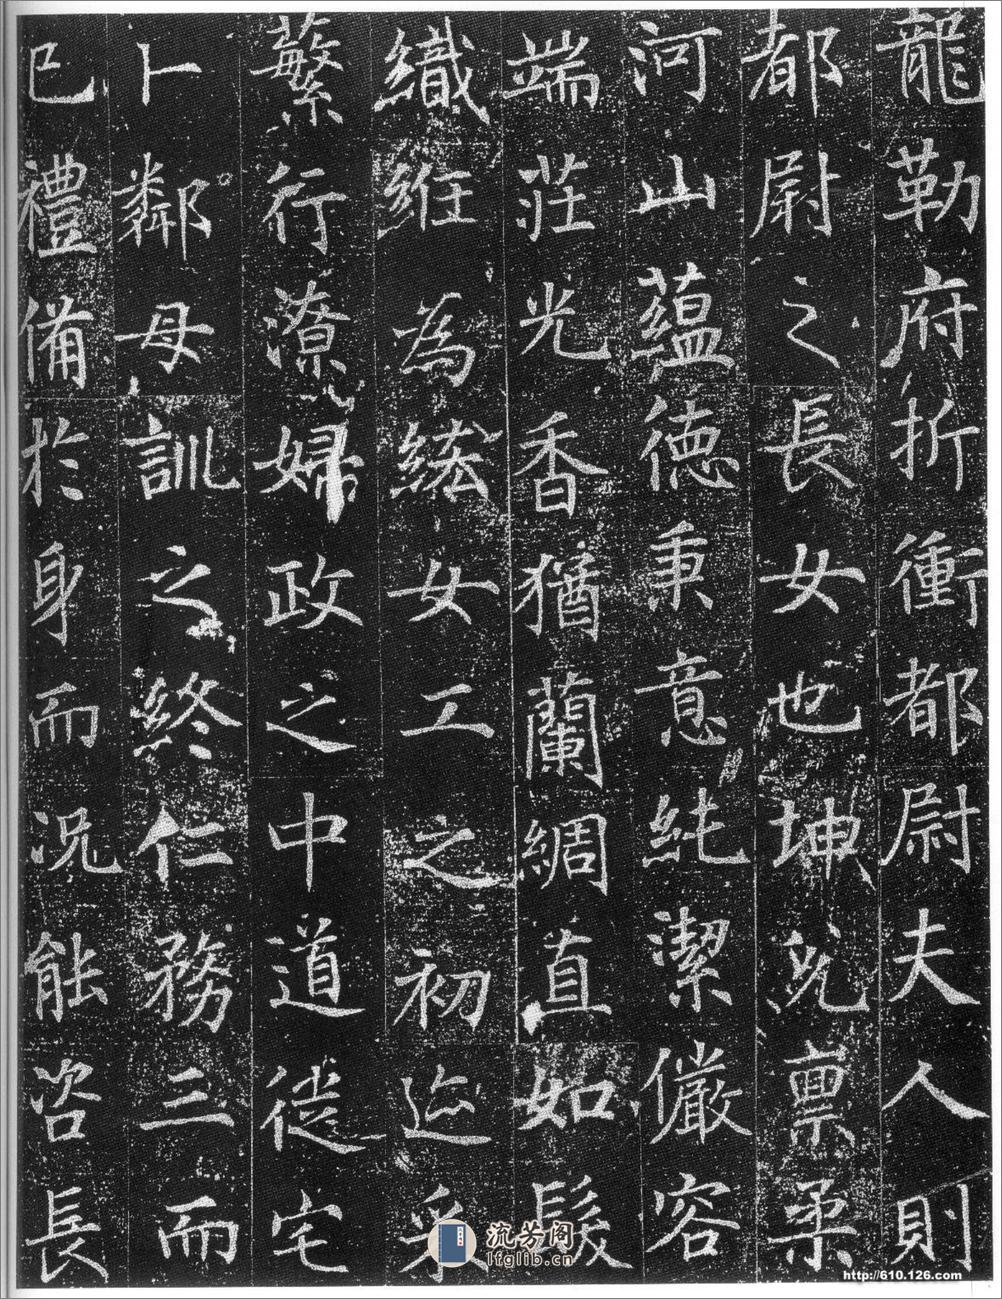 龍勒府折衝都尉夫人則
都尉之長女也坤皃禀柔
河山蘊德秉意純潔儼容
端莊光香猶蘭綢直如髮
織紝為綋女工之初迩采
蘩行潦婦政之中道徙宅
卜鄰母訓之終仁務三而
已禮備於身而況能咨長
流芳阁
lfglib.cn
http://610.126.com